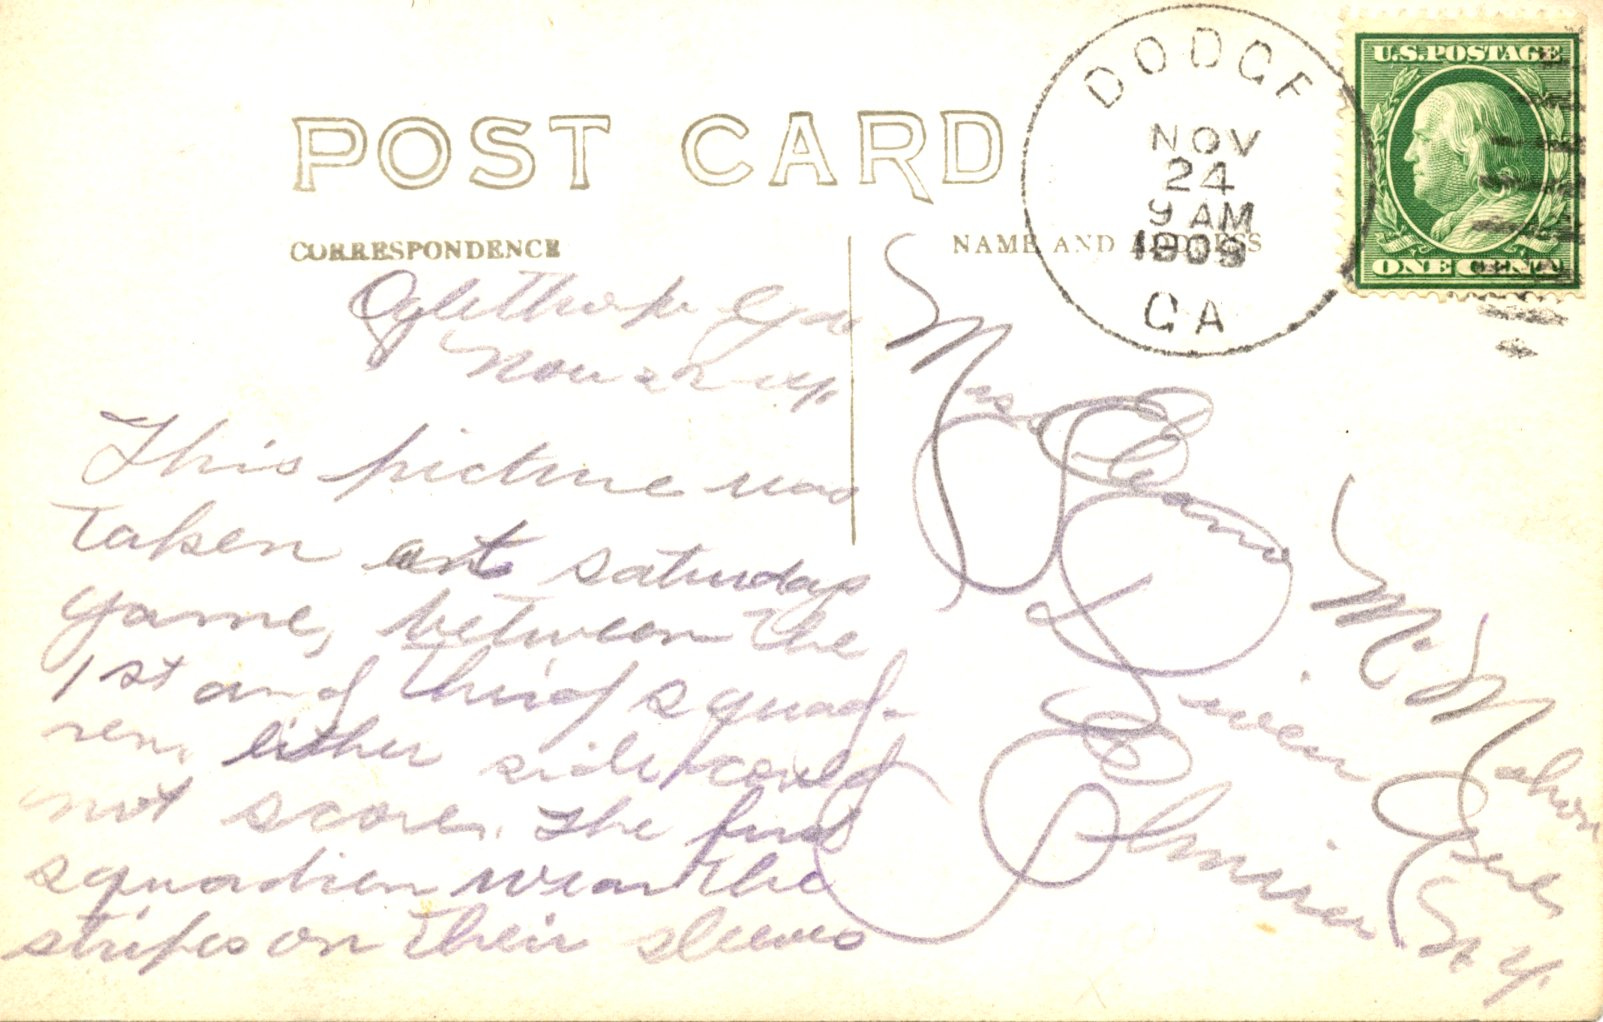 POST CARD
CORRESPONDENCE
NAME AND ADDRESS
DODGE
NOV
24
9 AM
1909
GA
U.S. POSTAGE
ONE CENT
Oglethorpe Ga
Nov 22
This picture was
taken at saturday
game, between the
1st and third squad-
ren, either side could
not score. The first
squadren wear the
stripes on their sleeves
Miss Eleanor McMahon
Junction
Elmira N.Y.